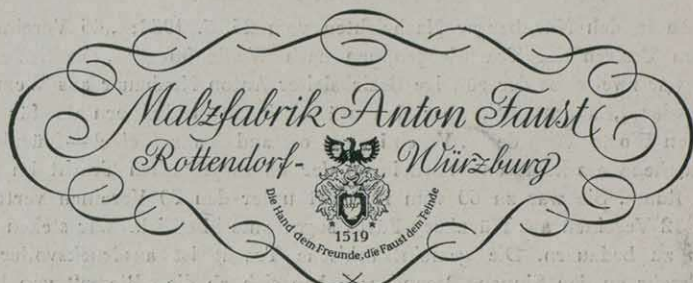 Malzfabrik Anton Faust
Rottendorf - Würzburg
1519
Die Hand dem Freunde, die Faust dem Feinde